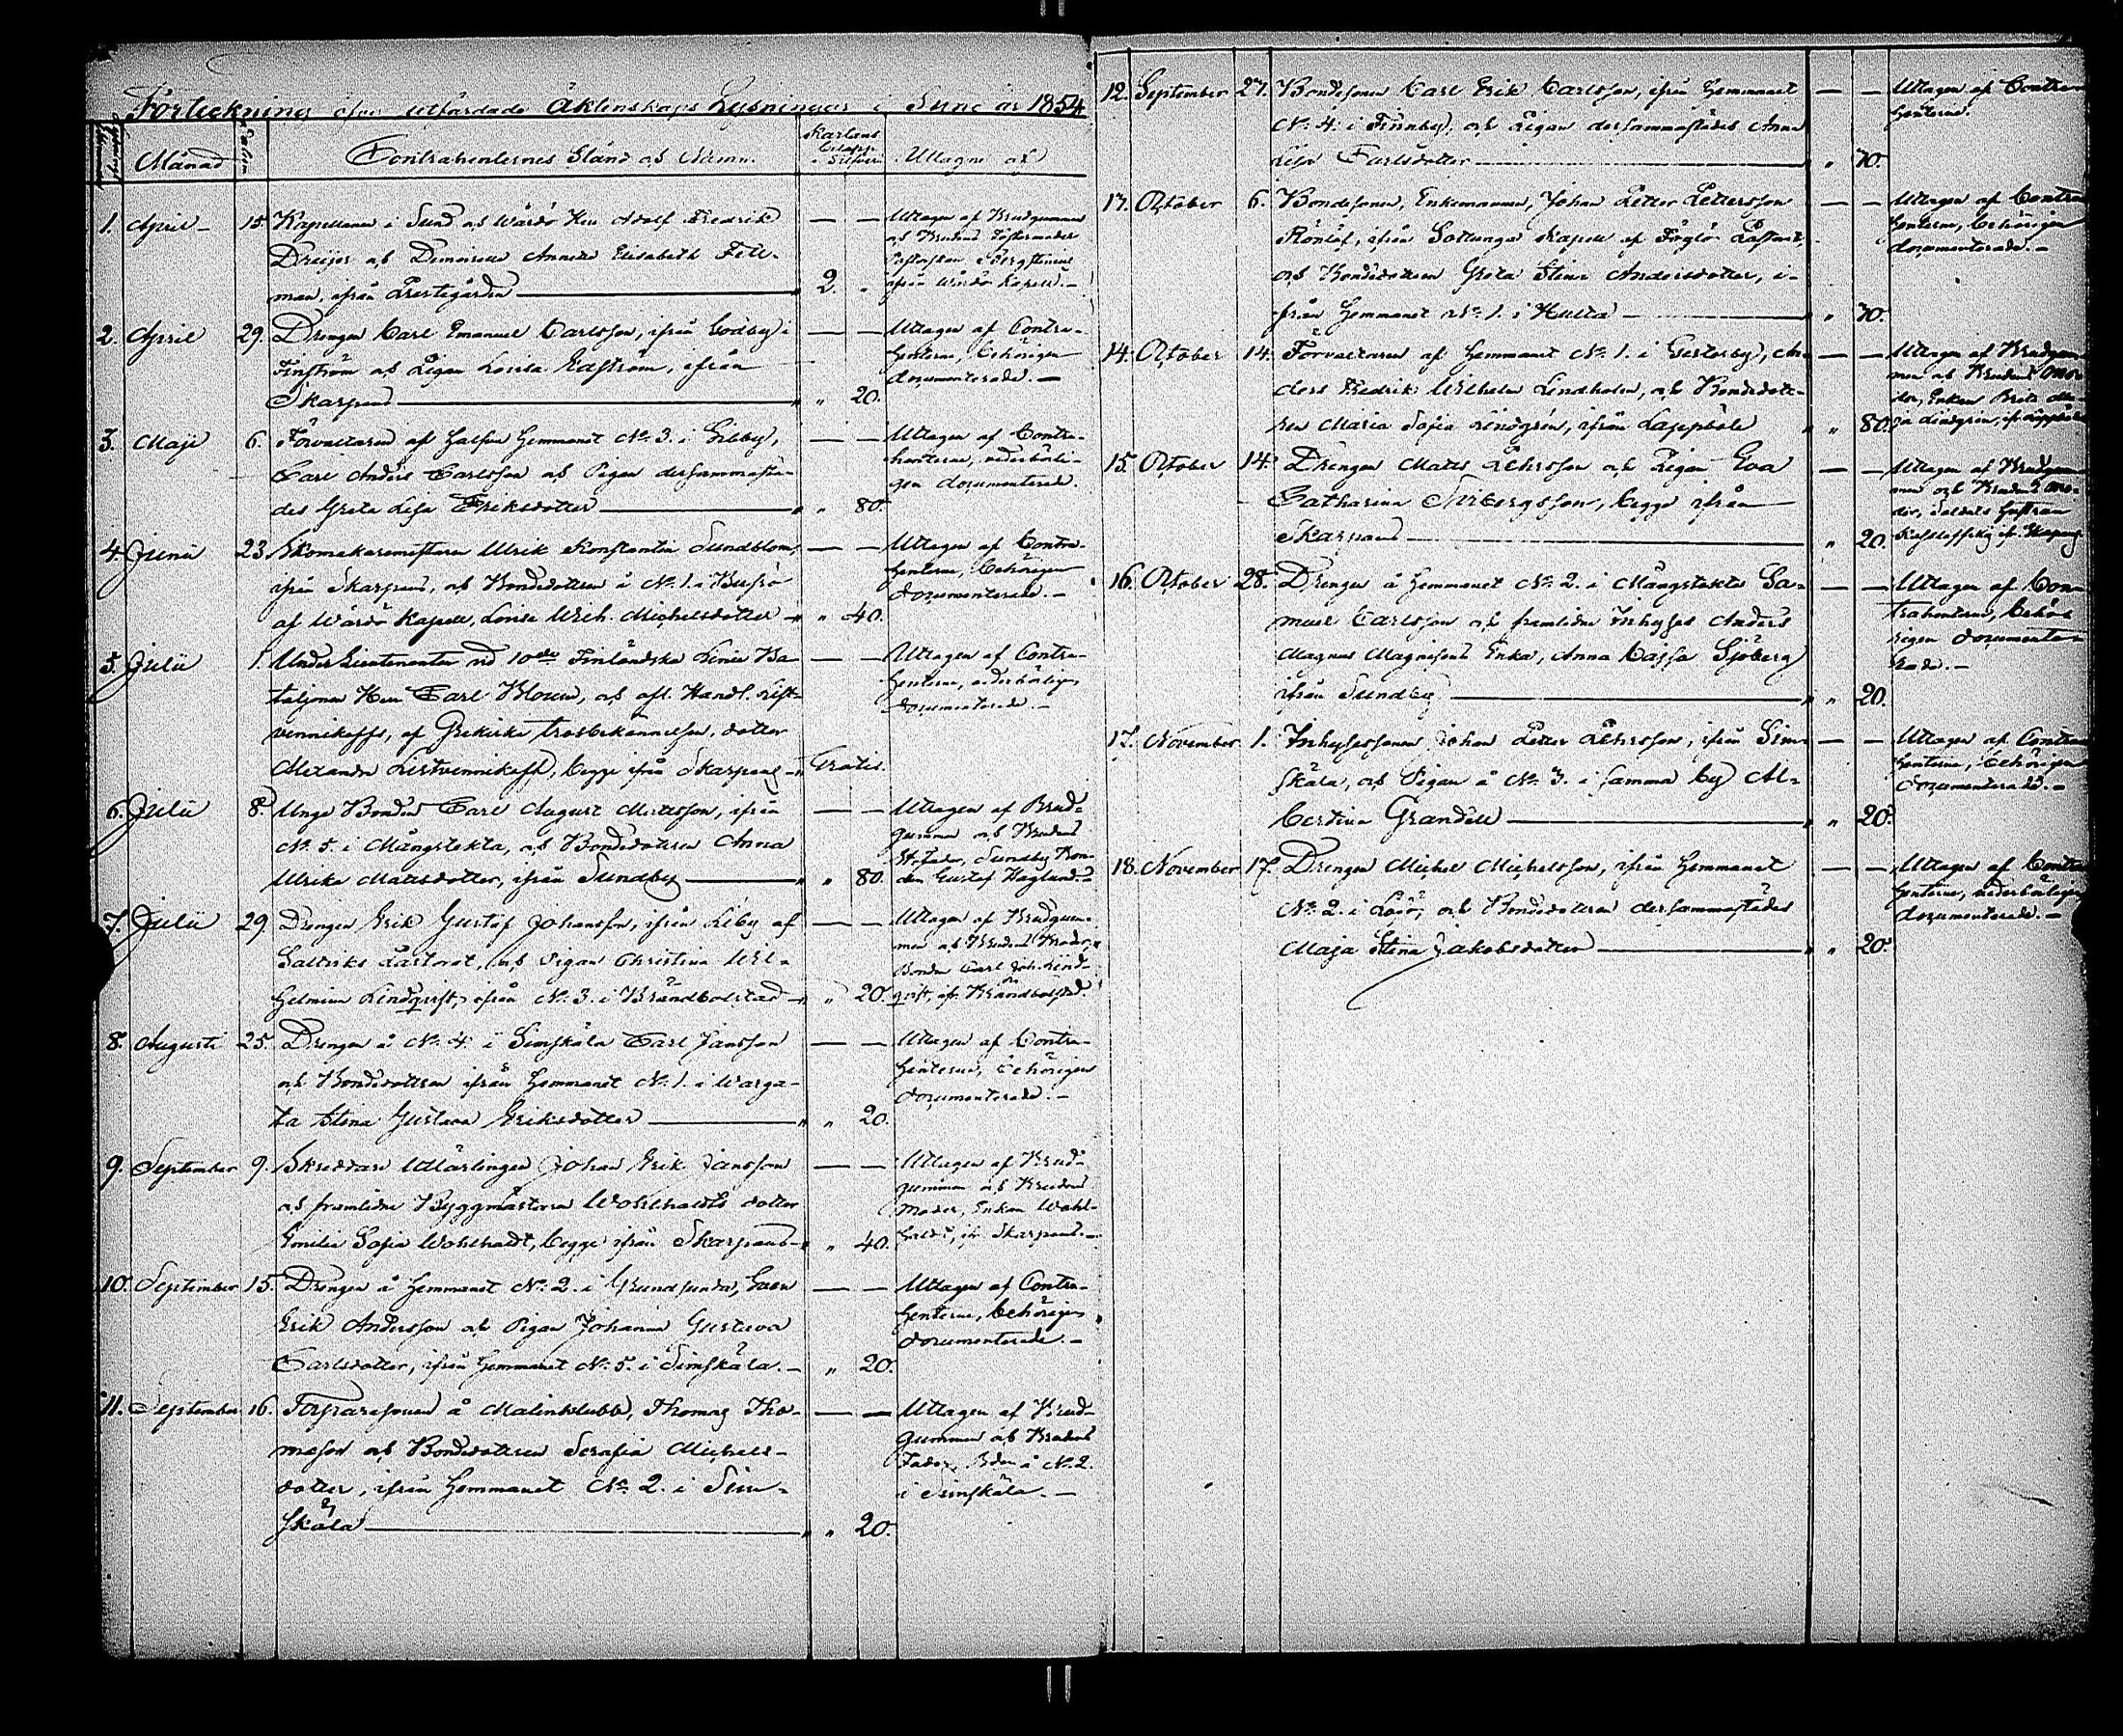 Förteckning öfver utfärdade Äktenskaps Lysningar i Sund år 1854
Månad
Datum
Contrahenternes Stånd och Namn.
Karlens
Silfver
Uttagne af
1. April 15. Kapellanen i Sund och Wårdö Herr Adolf Fredrik
Dreijer och Demoiselle Annette Elisabeth Fell-
man, ifrån Prestegården 2. „
Uttagen af Brudgummen
och Brudens Fostermoder
ifrån Wårdö Kapell.
2. April 29. Drengen Carl Emanuel Carlsson, ifrån Godby i
Finström och Pigan Lovisa Edström, ifrån
Skarpans „ 20.
Uttagen af Contra-
henterne, behörigen
documenterade.
3. Maji 6. Förvaltaren af halfva Hemmanet No 3. i Gibby,
Carl Anders Carlsson och Pigan dersammastä-
des Greta Lisa Eriksdotter „ 80.
Uttagen af Contra-
henterne, vederböri-
gen documenterade.
4. Junii 23. Skomakaremästaren Ulrik Konstantin Sundblom,
ifrån Skarpans, och Bondedottren å No 1. i Bussö
af Wårdö Kapell, Lovisa Wilh. Michelsdotter „ 40.
Uttagen af Contra-
henterne, behörigen
documenterade.
5. Julii 1. Under Lieutenanten vid 10de Finländska Linie Ba-
taljonen Herr Carl Blom, och afl. Handl. List-
vennikoffs, af Grekiska trosbekännelsen, dotter
Alexandra Listvennikoff, begge ifrån Skarpans Gratis.
Uttagen af Contra-
henterne, vederbörligen
documenterade.
6. Julii 8. Unge Bonden Carl August Mattsson, ifrån
No 5. i Mångstekta, och Bondedottren Anna
Ulrika Mattsdotter, ifrån Sundby „ 80.
Uttagen af Brud-
gummen och Brudens
Stjufader, Sundby Bon-
den Gustaf Haglund.
7. Julii 29 Drengen Erik Gustaf Johansson, ifrån Liby af
Saltviks Pastorat, och Pigan Christina Wil-
helmina Lindqvist, ifrån No 3. i Brändbolstad „ 20.
Uttagen af Brudgum-
men och Brudens Broder,
Bonden Carl Joh. Lind-
qvist, ifr. Brändbolstad.
8. Augusti 25. Drengen å No 4. i Simskäla Carl Jansson
och Bondedottren ifrån Hemmanet No 1. i Warga-
ta Stina Gustava Eriksdotter „ 20.
Uttagen af Contra-
henterne, behörigen
documenterade.
9. September 9. Skreddare Utlärlingen Johan Erik Jansson
och framlidne Byggmästaren Wohlhaldts dotter
Emilia Sofia Wohlhaldt, begge ifrån Skarpans „ 40.
Uttagen af Brud-
gummen och Brudens
Moder, Enkan Wahl-
haldt, ifr. Skarpans.
10. September 15. Drengen å Hemmanet No 2. i Grundsunda, Sven
Erik Andersson och Pigan Johanna Gustava
Carlsdotter, ifrån Hemmanet No 5. i Simskäla. „ 20.
Uttagen af Contra-
henterne, behörigen
documenterade.
11. September 16. Torparesonen å Malinklubb, Thomas Tho-
masson och Bondedottren Serafia Michels-
dotter, ifrån Hemmanet No 2. i Sim-
skäla „ 20.
Uttagen af Brud-
gummen och Brudens
Fader, Bden å No 2.
i Simskäla.
12. September 27. Bondesonen Carl Erik Carlsson, ifrån Hemmanet
No 4. i Finnby, och Pigan dersammastädes Anna
Lisa Carlsdotter „ 70.
Uttagen af Contra-
henterne.
13. October 6. Bondesonen, Enkemannen, Johan Petter Pettersson
Rönlöf, ifrån Sottunga Kapell af Föglö Pastorat,
och Bondedottren Greta Stina Andersdotter, i-
från Hemmanet No 1. i Hulta „ 70.
Uttagen af Contra-
henterne, behörigen
documenterade.
14. October 14. Förvaltaren af Hemmanet No 1. i Gesterby, An-
ders Fredrik Wilhelm Lindholm, och Bondedott-
ren Maria Sofia Lindgrén, ifrån Lappböle „ 80.
Uttagen af Brudgum-
men och Brudens Mo-
der, Enkan Brita Ma-
ja Lindgrén, ifr. Lappböle
15. October 14. Drengen Matts Pehrsson och Pigan Eva
Catharina Sirbergsson, begge ifrån
Skarpans „ 20.
Uttagen af Brudgum-
men och Brudens Mo-
der, Soldats Hustrun
16. October 28. Drengen å Hemmanet No 2. i Mångstekta Sa-
muel Carlsson och framlidne Inhyses Anders
Magnus Magnissons Enka, Anna Cajsa Sjöberg
ifrån Sundby „ 20.
Uttagen af Con-
trahenterne, behö-
rigen documente-
rade.
17. November 1. Inhysessonen Johan Petter Pehrsson, ifrån Sim-
skäla, och Pigan å No 3. i samma by Al-
bertina Grandell „ 20.
Uttagen af Contra-
henterne, behörigen
documenterade.
18. November 17. Drengen Michel Michelsson, ifrån Hemmanet
No 2. i Lövö, och Bondedottren dersammastädes
Maja Stina Jakobsdotter „ 20.
Uttagen af Contra-
henterne, vederbörligen
documenterade.